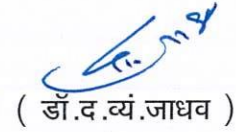 ( डॉ.द.व्यं.जाधव )